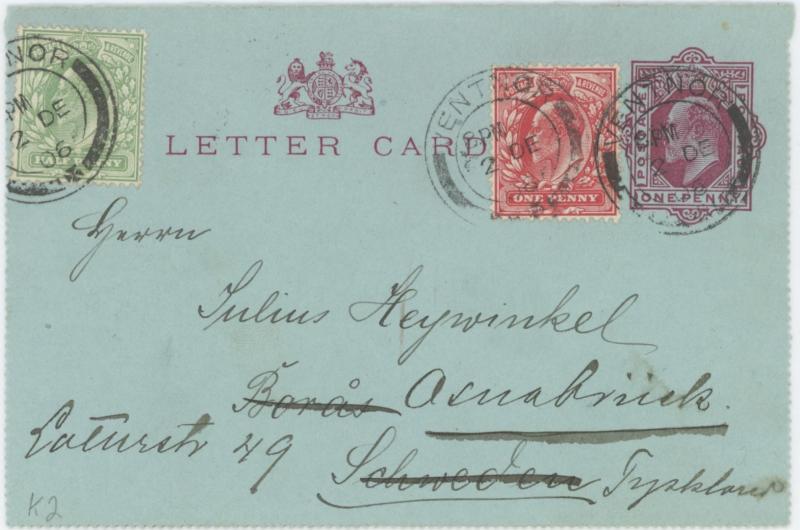 LETTER CARD
VENTNOR
PM
2 DE
06
HALFPENNY
VENTNOR
8 PM
2 DE
ONE PENNY
VENTNOR
8 PM
2 DE
POSTAGE
ONE PENNY
Herrn
Julius Heywinkel
Borås Osnabrück.
49 Schweden Tyskland
K2